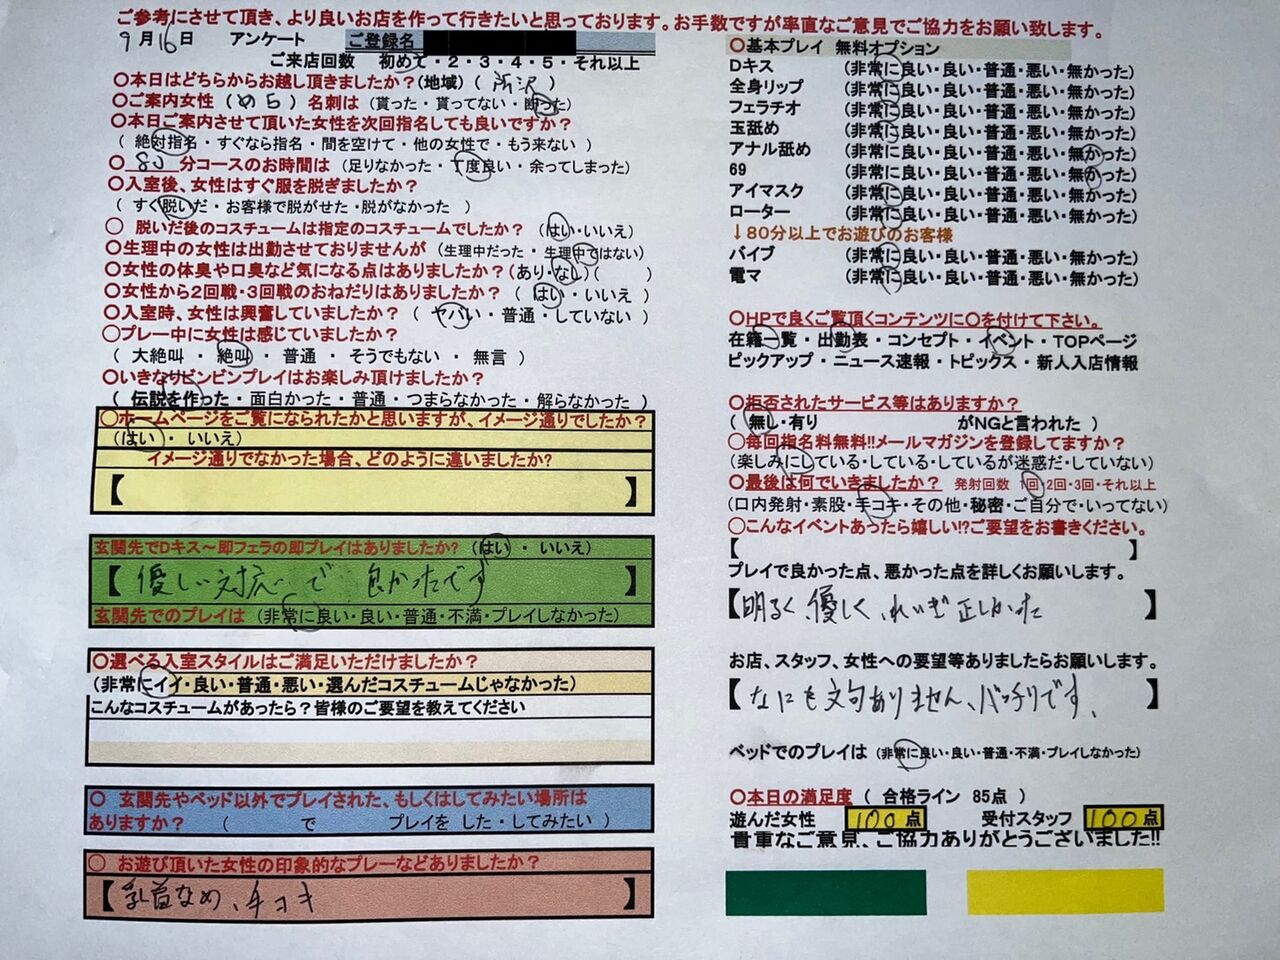 ご参考にさせて頂き、より良いお店を作って行きたいと思っております。お手数ですが率直なご意見でご協力をお願い致します。
9月16日 アンケート ご登録名
ご来店回数 初めて・2・3・4・5・それ以上
〇本日はどちらからお越し頂きましたか?(地域)( 所沢 )
〇ご案内女性(める)名刺は(貰った・貰ってない・断った)
〇本日ご案内させて頂いた女性を次回指名しても良いですか?
(絶対指名・すぐなら指名・間を空けて・他の女性で・もう来ない)
〇 80 分コースのお時間は(足りなかった・丁度良い・余ってしまった)
〇入室後、女性はすぐ服を脱ぎましたか?
(すぐ脱いだ・お客様で脱がせた・脱がなかった )
〇 脱いだ後のコスチュームは指定のコスチュームでしたか?(はい・いいえ)
〇生理中の女性は出勤させておりませんが(生理中だった・生理中ではない)
〇女性の体臭や口臭など気になる点はありましたか?(あり・なし)( )
〇女性から2回戦・3回戦のおねだりはありましたか?( はい・いいえ )
〇入室時、女性は興奮していましたか?( ヤバい・普通・していない )
〇プレー中に女性は感じていましたか?
( 大絶叫・絶叫・普通・そうでもない・無言 )
〇いきなりビンビンプレイはお楽しみ頂けましたか?
( 伝説を作った・面白かった・普通・つまらなかった・解らなかった )
〇ホームページをご覧になられたかと思いますが、イメージ通りでしたか?
(はい・いいえ)
イメージ通りでなかった場合、どのように違いましたか?
【 】
玄関先でDキス~即フェラの即プレイはありましたか?(はい・いいえ)
【 優しい対応で 良かったです 】
玄関先でのプレイは(非常に良い・良い・普通・不満・プレイしなかった)
〇選べる入室スタイルはご満足いただけましたか?
(非常にイイ・良い・普通・悪い・選んだコスチュームじゃなかった)
こんなコスチュームがあったら?皆様のご要望を教えてください
〇 玄関先やベッド以外でプレイされた、もしくはしてみたい場所は
ありますか?( で プレイを した・してみたい )
〇 お遊び頂いた女性の印象的なプレーなどありましたか?
【 乳首なめ、手コキ 】
〇基本プレイ 無料オプション
Dキス (非常に良い・良い・普通・悪い・無かった)
全身リップ (非常に良い・良い・普通・悪い・無かった)
フェラチオ (非常に良い・良い・普通・悪い・無かった)
玉舐め (非常に良い・良い・普通・悪い・無かった)
アナル舐め (非常に良い・良い・普通・悪い・無かった)
69 (非常に良い・良い・普通・悪い・無かった)
アイマスク (非常に良い・良い・普通・悪い・無かった)
ローター (非常に良い・良い・普通・悪い・無かった)
↓80分以上でお遊びのお客様
バイブ (非常に良い・良い・普通・悪い・無かった)
電マ (非常に良い・良い・普通・悪い・無かった)
〇HPで良くご覧頂くコンテンツに〇を付けて下さい。
在籍一覧・出勤表・コンセプト・イベント・TOPページ
ピックアップ・ニュース速報・トピックス・新人入店情報
〇拒否されたサービス等はありますか?
( 無し・有り がNGと言われた )
〇毎回指名料無料!!メールマガジンを登録してますか?
(楽しみにしている・している・しているが迷惑だ・していない)
〇最後は何でいきましたか? 発射回数 1回・2回・3回・それ以上
(口内発射・素股・手コキ・その他・秘密・ご自分で・いってない)
〇こんなイベントあったら嬉しい!?ご要望をお書きください。
【 】
プレイで良かった点、悪かった点を詳しくお願いします。
【明るく、優しく、れいぎ正しかった 】
お店、スタッフ、女性への要望等ありましたらお願いします。
【 なにも文句ありません、バッチリです、 】
ベッドでのプレイは (非常に良い・良い・普通・不満・プレイしなかった)
〇本日の満足度 ( 合格ライン 85点 )
遊んだ女性 100点 受付スタッフ 100点
貴重なご意見、ご協力ありがとうございました!!